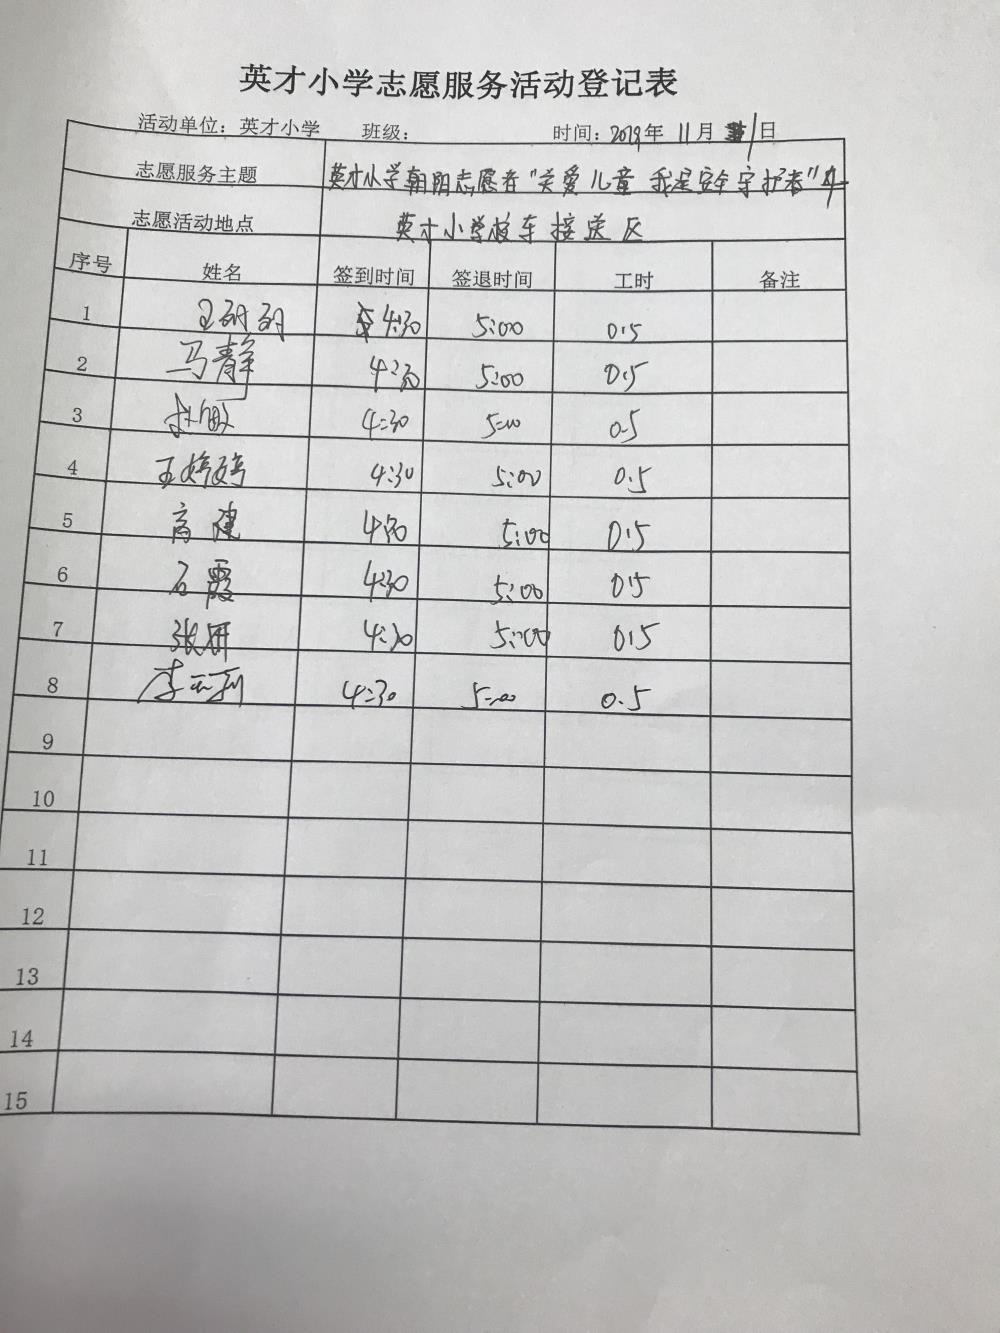 英才小学志愿服务活动登记表
活动单位：英才小学 班级： 时间：2019年 11月 1日
志愿服务主题 英才小学朝阳志愿者“关爱儿童 我是安全守护者”
志愿活动地点 英才小学校车接送区
序号 姓名 签到时间 签退时间 工时 备注
1 4:30 5:00 0.5
2 马静 4:30 5:00 0.5
3 4:30 5:00 0.5
4 王婷婷 4:30 5:00 0.5
5 高建 4:30 5:00 0.5
6 石霞 4:30 5:00 0.5
7 张妍 4:30 5:00 0.5
8 4:30 5:00 0.5
9
10
11
12
13
14
15